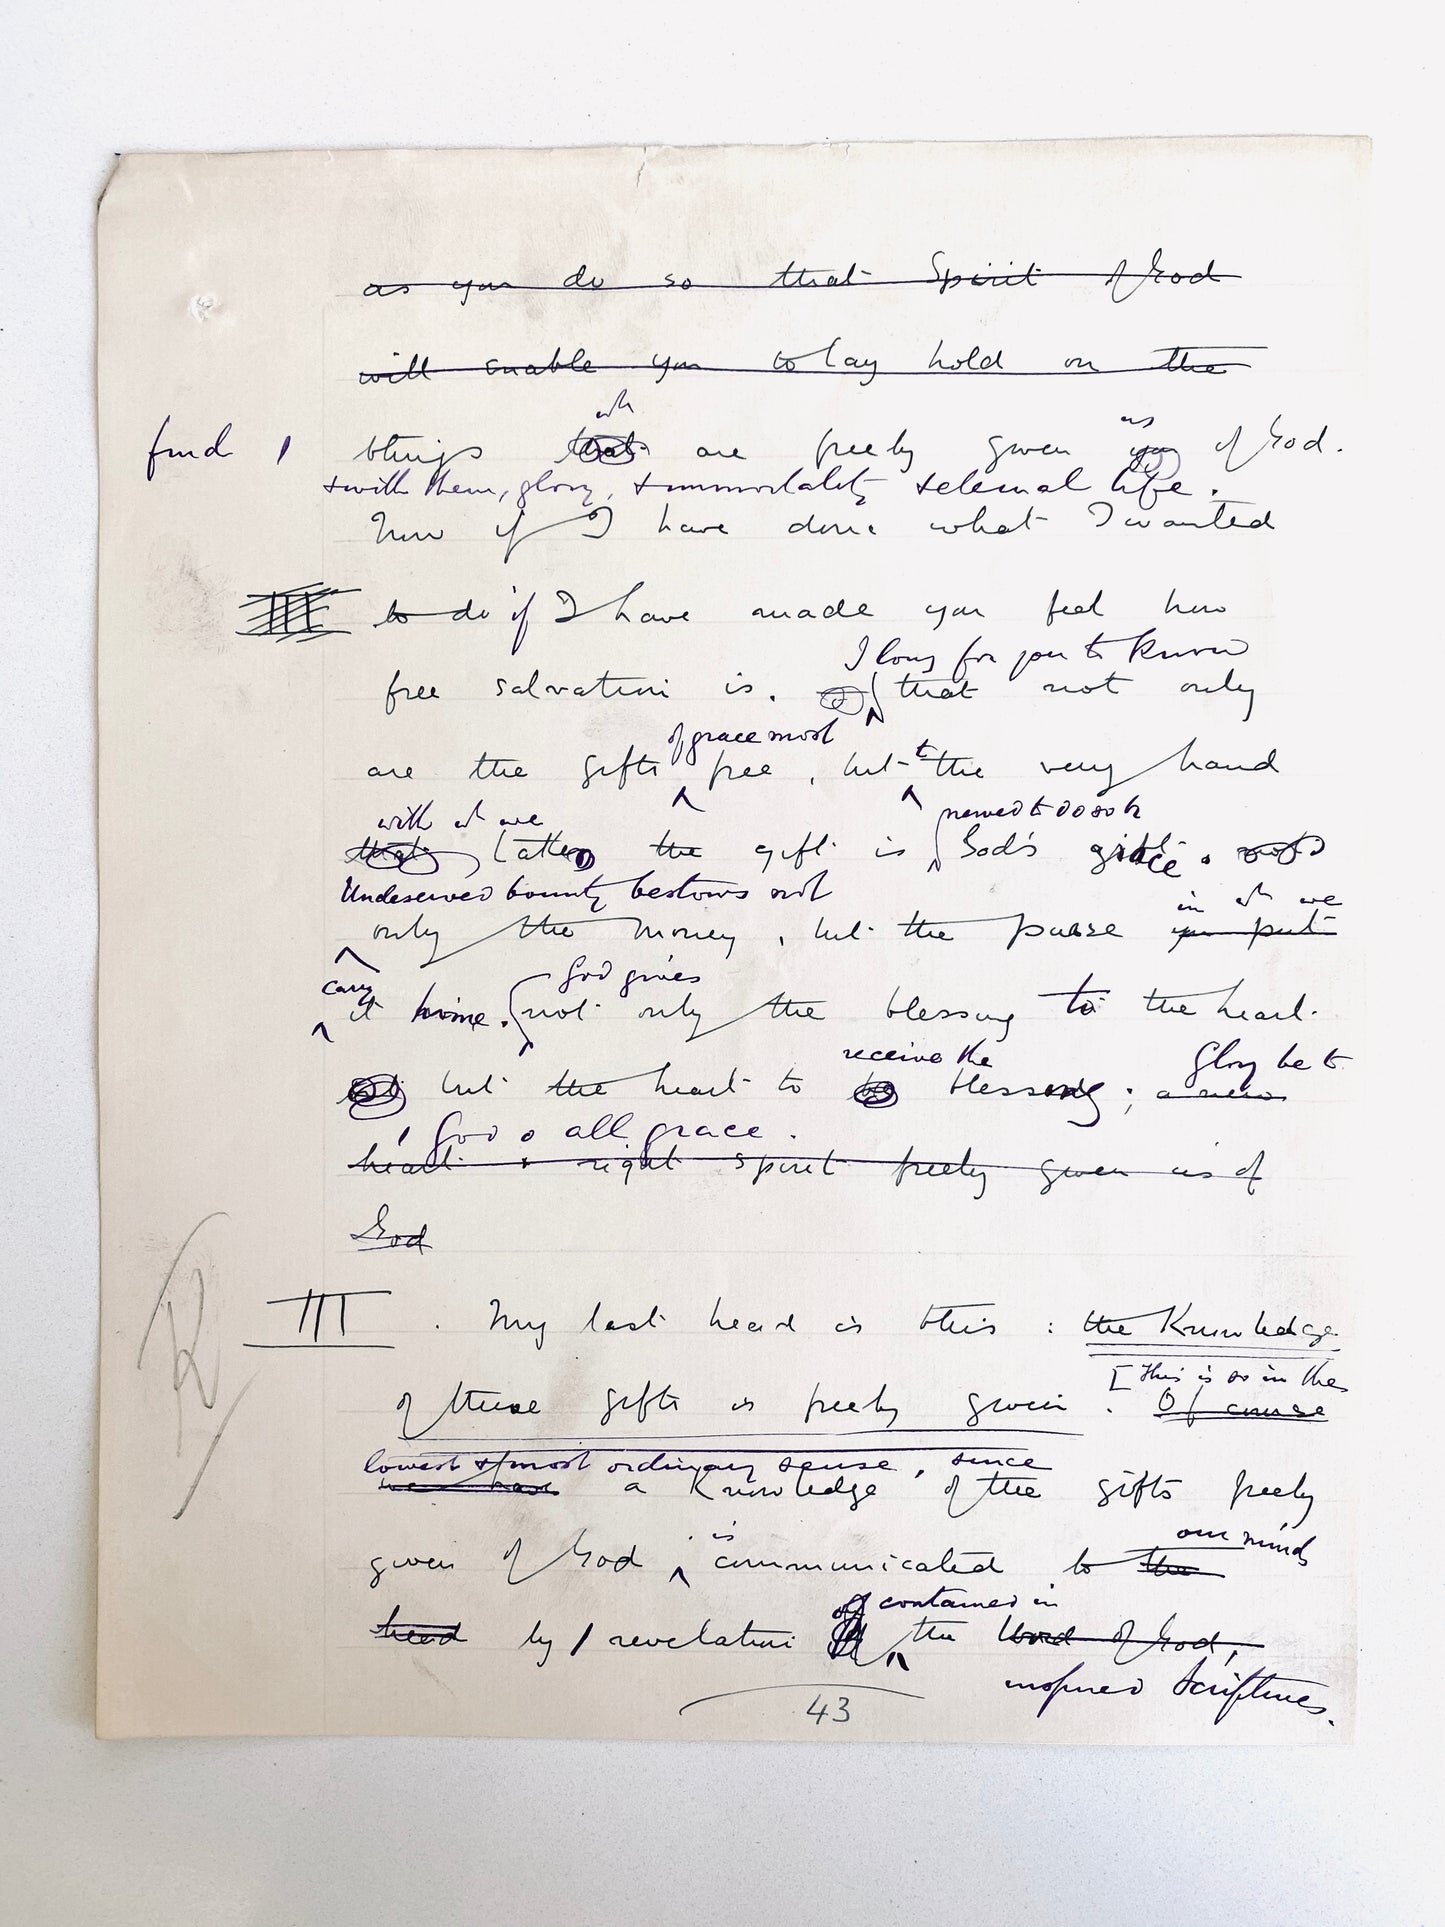 as you do so that Spirit of God
will enable you to lay hold on the
wh us
find / things that are freely given you of God.
+ with them, glory, + immortality + eternal life.
Now if I have done what I wanted
III to do if I have made you feel how
I long for you to know
free salvation is. that not only
of grace most
are the gifts free, but t the very hand
with wh we moved to do so by
that takes the gift is God's grace. not
Undeserved bounty bestows not in wh we
only the money, but the purse you put
carry God gives
it home. not only the blessing to the heart
receive the Glory be to
but the heart to blessing; a new
/ God o all grace.
heart & right spirit freely given us of
God
III. My last head is this: the Knowledge
[This is so in the
of these gifts is freely given. Of course
lowest & most ordinary sense, since
we have a Knowledge of the gifts freely
is our minds
given of God communicated to the
of contained in
head by / revelation the Word of God,
inspired Scriptures.
43